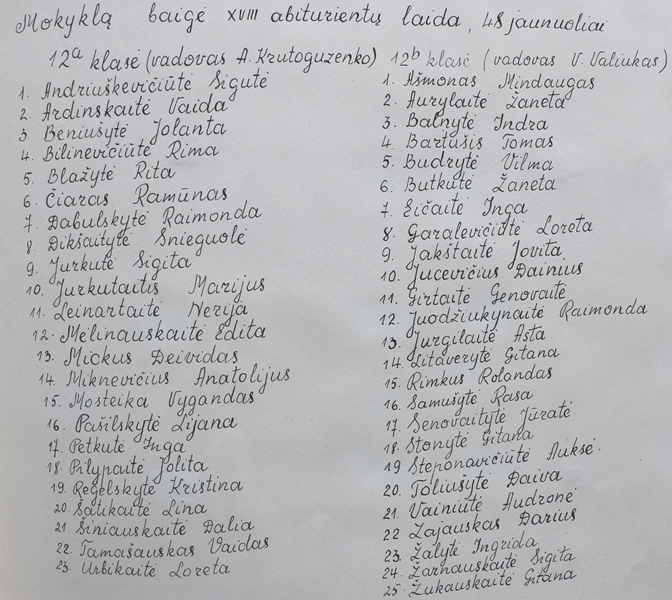 Mokyklą baigė XVIII abiturientų laida, 48 jaunuoliai
12ᵃ klasė (vadovas A. Krutoguzenko)
1. Andriuškevičiūtė Sigutė
2. Ardinskaitė Vaida
3. Beniušytė Jolanta
4. Bilinevičiūtė Rima
5. Blažytė Rita
6. Čiaras Ramūnas
7. Dabulskytė Raimonda
8. Dikšaitytė Snieguolė
9. Jurkutė Sigita
10. Jurkutaitis Marijus
11. Leinartaitė Nerija
12. Melinauskaitė Edita
13. Mickus Deividas
14. Miknevičius Anatolijus
15. Mosteika Vygandas
16. Pašilskytė Lijana
17. Petkutė Inga
18. Pilypaitė Jolita
19. Regelskytė Kristina
20. Šatikaitė Lina
21. Šiniauskaitė Dalia
22. Tamašauskas Vaidas
23. Urbikaitė Loreta
12ᵇ klasė (vadovas V. Valiukas)
1. Ašmonas Mindaugas
2. Aurylaitė Žaneta
3. Balnytė Indra
4. Bartušis Tomas
5. Budrytė Vilma
6. Butkutė Žaneta
7. Eičaitė Inga
8. Garalevičiūtė Loreta
9. Jakštaitė Jovita
10. Jucevičius Dainius
11. Girtaitė Genovaitė
12. Juodžiukynaitė Raimonda
13. Jurgilaitė Asta
14. Litaverytė Gitana
15. Rimkus Rolandas
16. Samušytė Rasa
17. Senovaitytė Jūratė
18. Stonytė Gitana
19. Steponavičiūtė Auksė.
20. Toliušytė Daiva
21. Vainiutė Audronė
22. Zajauskas Darius
23. Žalytė Ingrida
24. Žarnauskaitė Sigita
25. Žukauskaitė Gitana